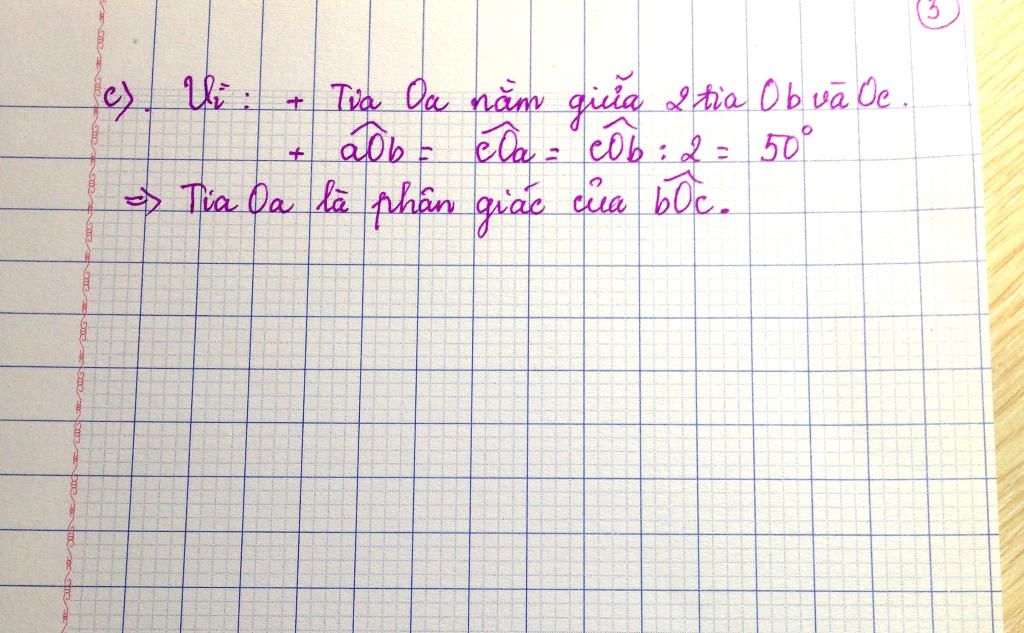 3
c). Vì: + Tia Oa nằm giữa 2 tia Ob và Oc.
+ aÔb = cÔa = cÔb : 2 = 50°
=> Tia Oa là phân giác của bÔc.